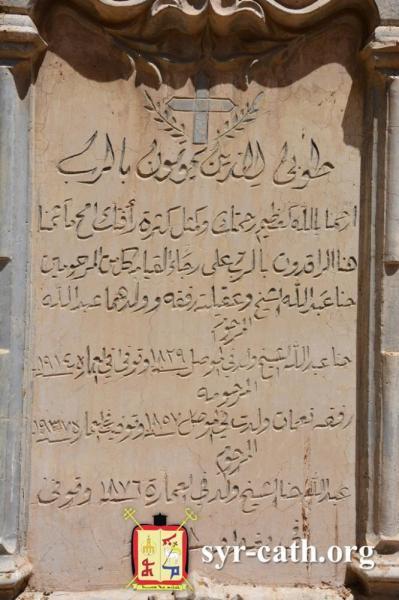 طوبى للذين يموتون بالرب
ارحمنا يالله كعظيم رحمتك وكمثل كثرة رأفتك امح مآثمنا
هنا الراقدون بالرب على رجاء القيامة كل من المرحومين
حنا عبدالله الشيخ وعقيلته رفقه وولدهما عبدالله
المرحوم
حنا عبدالله الشيخ ولد في الموصل ١٨٢٩ وتوفي في العمارة ١٩١٤
المرحومه
رفقه نعمان ولدت في الموصل ١٨٥٧ وتوفيت في العماره
المرحوم
عبدالله حنا الشيخ ولد في العمارة ١٨٧٦ وتوفي
في بغداد
syr-cath.org